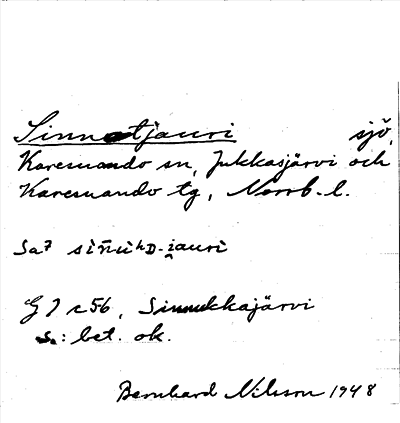 Sinnotjauri sjö,
Karesuando sn, Jukkasjärvi och
Karesuando tg, Norrb. l.
Sa7 siñuʰD-i̯auri
GJ c56, Sinnukkajärvi
s.: bet. ok.
Bernhard Nilsson 1948